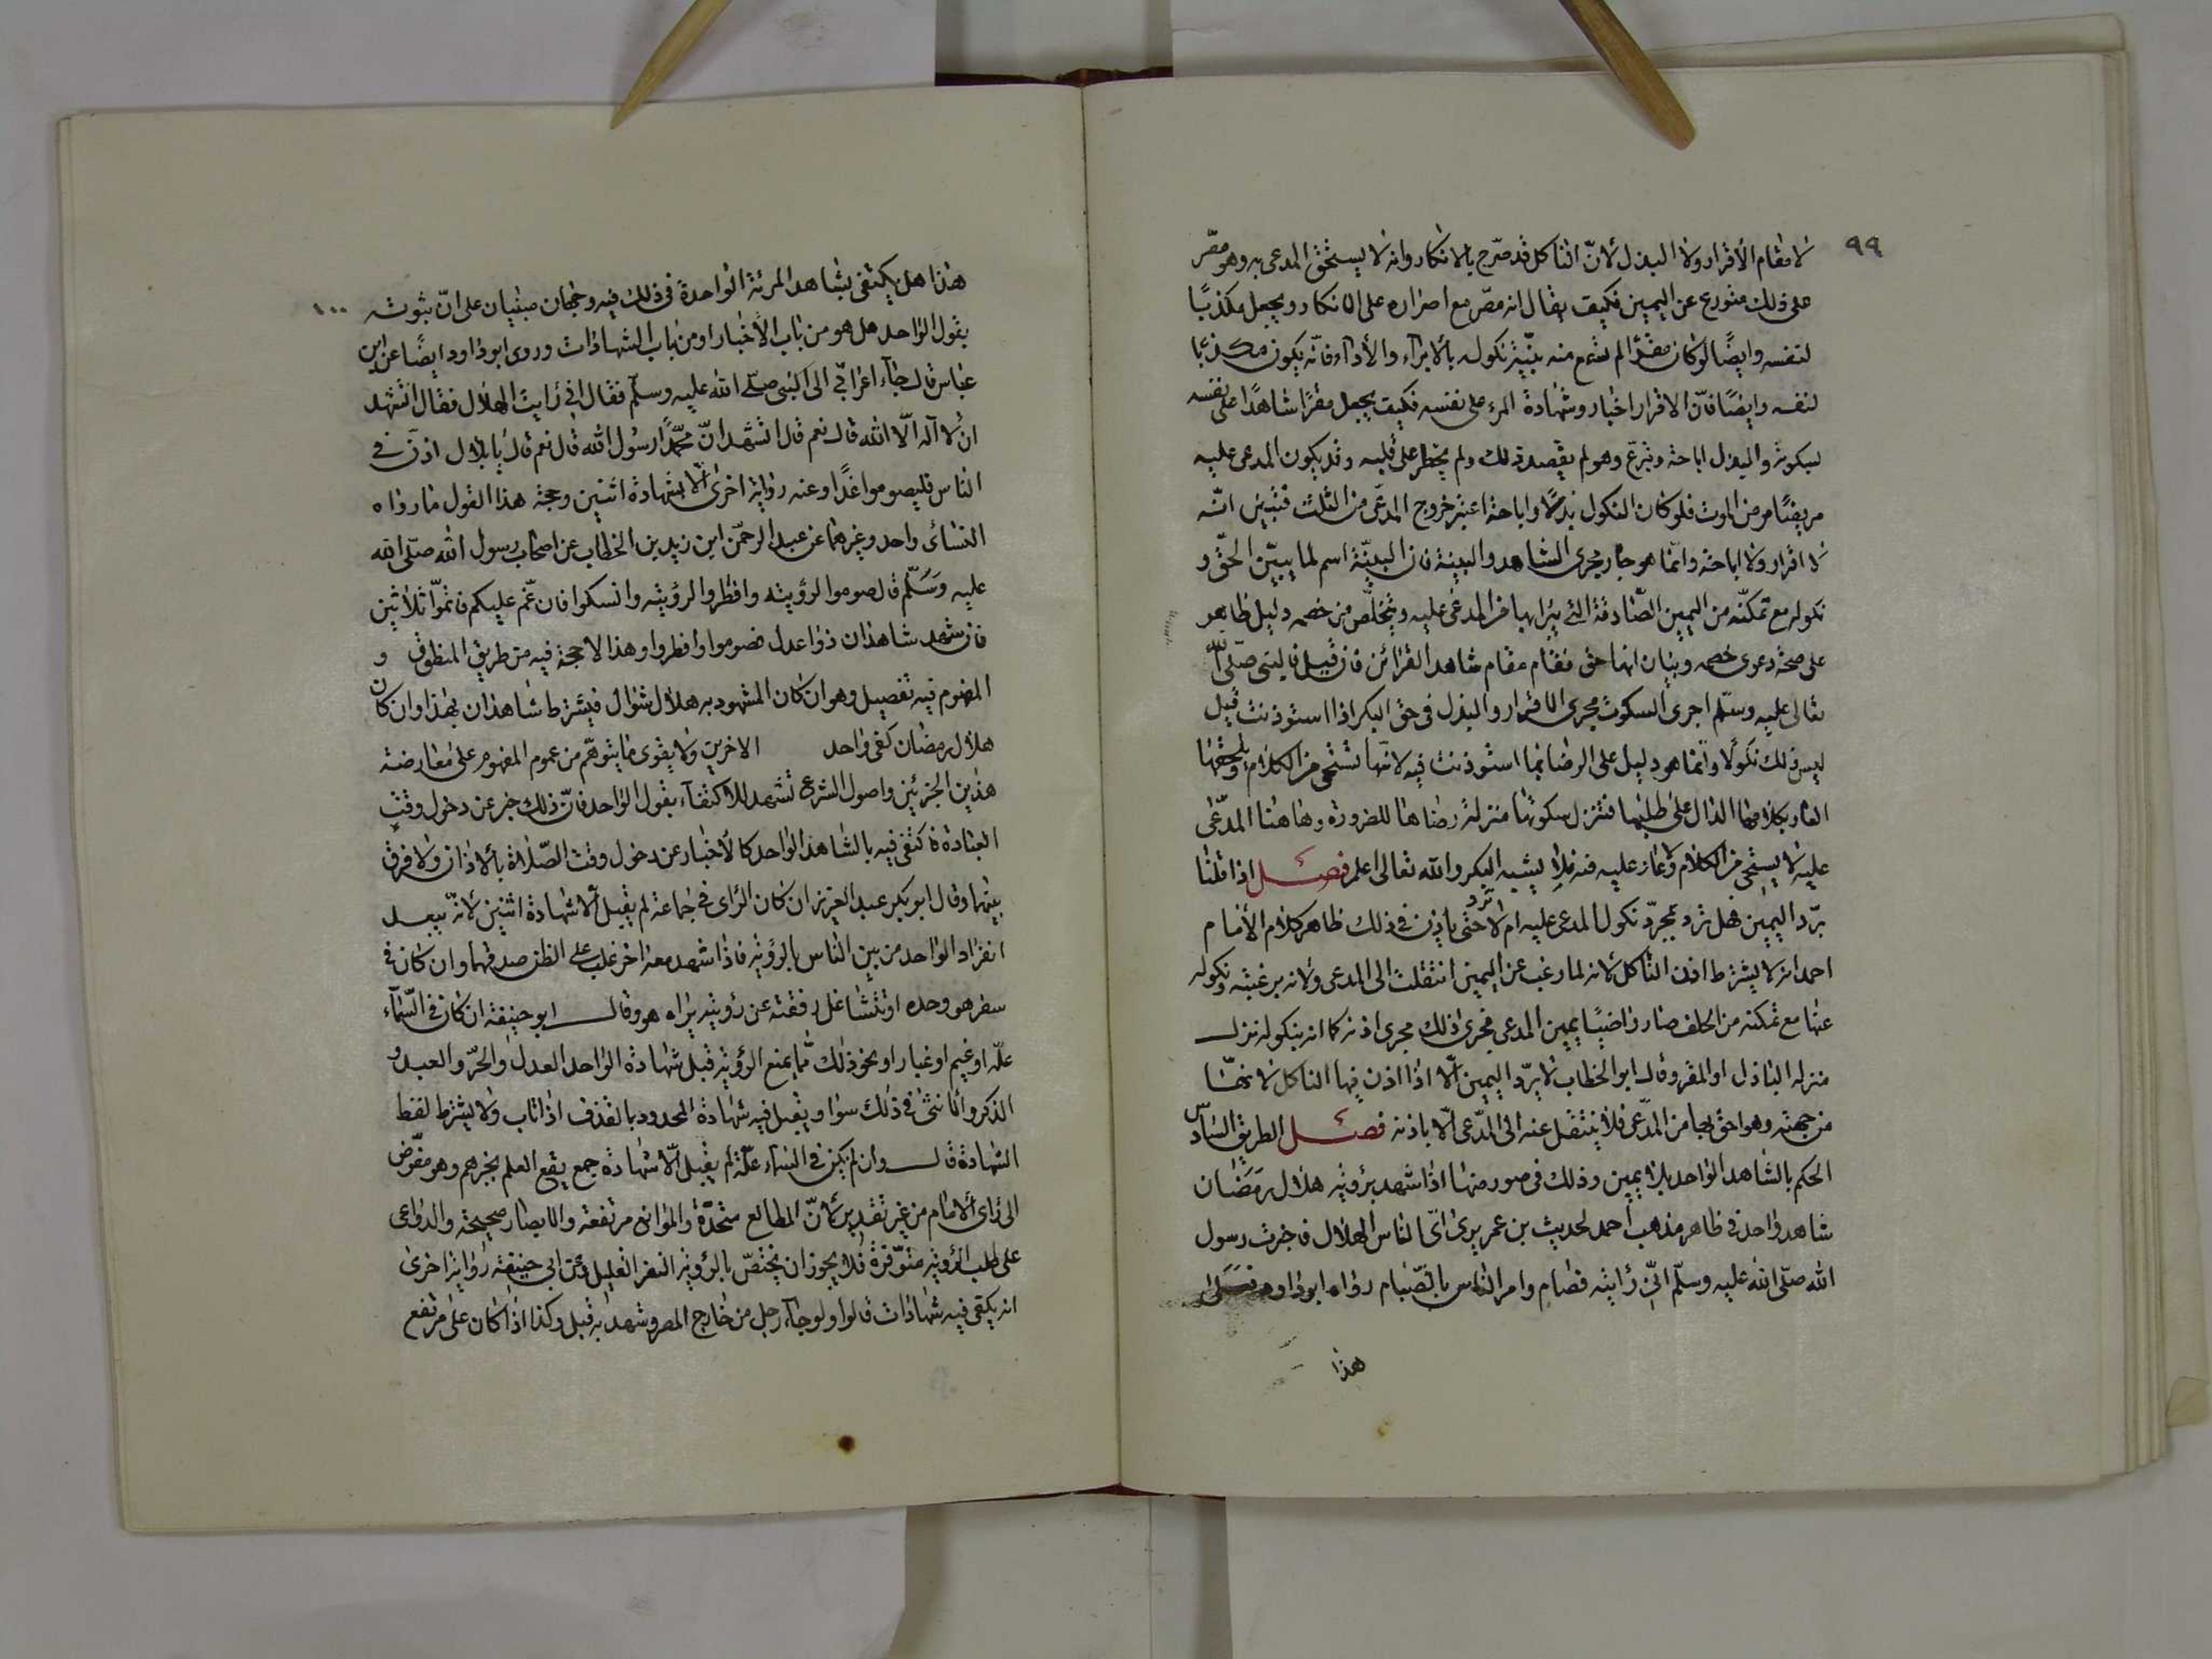 ٩٩
لا مقام الأقرار ولا البذل لأنّ الناكل قد صرّح بالانكار وانه لا يستحق المدعى به وهو مصّر
على ذلك متورع عن اليمين فكيف يقال انه مقر مع اصراره على الانكار ويجعل مكذبًا
لنفسه وايضًا لو كان مقرًا لم تسمع منه بنيّة نكوله بالابراء والأداء فانّه يكون مكذبا
لنفسه وايضًا فانّ الاقرار اخبار وشهادة المرء على نفسه فكيف يجعل مقرًا شاهدًا على نفسه
بسكوته والبذل اباحة وتبرع وهو لم يقصد ذلك ولم يخطر على قلبه وقد يكون المدعى عليه
مريضًا مرض الموت فلو كان النكول بذلًا واباحة اعتبر خروج المدعى من الثلث فتبين انّه
لا اقرار ولا اباحة وانّما هو جار مجرى الشاهد والبينة فان البيّنة اسم لما يبيّن الحقّ و
نكوله مع تمكنّه من اليمين الصّادقة التى يبرأ بها من المدعى عليه ويتخلّص من خصمه دليل ظاهر
على صحّة دعوى خصمه وبيان انها حق فقام مقام شاهد القرائن فان قيل فالنبى صلّى اللّه
تعالى عليه وسلّم اجرى السكوت مجرى الاقرار والبذل فى حق البكر اذا استوذنت قيل
ليس ذلك نكولًا وانّما هو دليل على الرضا بما استوذنت فيه لانّها تستحى من الكلام ويلحقها
العار بكلامها الدال على طلبها فتنزل سكوتها منزلة رضاها للضرورة وهاهنا المدّعى
عليه لا يستحى من الكلام ولا عار عليه فيه فلا يشبه البكر والله تعالى اعلم فصل اذا قلنا
بردّ اليمين فهل ترد بمجرّد نكول المدعى عليه ام لا ترد حتى ياذن فى ذلك ظاهر كلام الأمام
احمد انه لا يشترط اذن الناكل لأنه لما رغب عن اليمين انتقلت الى المدعى ولأنه برغبته ونكوله
عنها مع تمكنه من الحلف صار راضيًا بيمين المدعى فجرى ذلك مجرى اذنه كما انه بنكوله نزل
منزله الباذل او المقر وقال ابو الخطاب لا يردّ اليمين الّا اذا اذن فيها الناكل لانهّا
من جهته وهو احق بها من المدّعى فلا ينتقل عنه الى المدّعى الّا باذنه فصل الطريق السّادس
الحكم بالشاهد الواحد بلا يمين وذلك فى صور منها اذا شهد برؤية هلال رمضان
شاهد واحد فى ظاهر مذهب احمد لحديث بن عمر يرى اىّ الناس الهلال فاخبرت رسول
الله صلّى الله عليه وسلّم انىّ رأيته فصام وامر الناس بالصّيام رواه ابو داود
هذا
١٠٠
هذا هل يكتفى بشاهد المرئة الواحدة فى ذلك فيه وجهان مبنيان على انّ ثبوته
بقول الواحد هل هو من باب الأخبار او من باب الشهادات وروى ابو داود ايضًا عن ابن
عباس قال جاء اعرابى الى النبى صلّى الله عليه وسلّم فقال انى رايت الهلال فقال اتشهد
ان لا اله الّا الله قال نعم قال اتشهد انّ محمّدًا رسول الله قال نعم قال يا بلال اذن فى
الناس فليصوموا غدًا وعنه رواية اخرى الّا بشهادة اثنين وحجة هذا القول ما رواه
النسائى واحد وغيرهما عن عبد الرحمن ابن زيد بن الخطاب عن اصحاب رسول الله صلّى الله
عليه وسلّم قال صوموا لرؤيته وافطروا لرؤيته وانسكوا فان غمّ عليكم فاتمّوا ثلاثين
فان شهد شاهدان ذوا عدل فصوموا وافطروا وهذا لا حجة فيه من طريق المنطوق و
المفهوم فيه تفصيل وهو ان كان المشهود به هلال شوال فيشترط شاهدان بهذا وان كان
هلال رمضان كفى واحد الاخرين ولا يقوى ما يتوهّم من عموم المفهوم على معارضة
هذين الجزئين واصول الشرع تشهد للاكتفاء بقول الواحد فانّ ذلك خبر عن دخول وقت
العبادة فاكتفى فيه بالشاهد الواحد كالأخبار عن دخول وقت الصّلاة بالاذان ولا فرق
بينهما وقال ابو بكر عبد العزيز ان كان الراى فى جماعة لم يقبل الّا شهادة اثنين لأنّه يبعد
انفراد الواحد من بين الناس بالرؤية فاذا شهد معه اخر غلب على الظن صدقهما وان كان فى
سفر هو وحده او تشاغل رفقته عن رؤيته يراه هو وقال ابو حنيفة ان كان فى السّماء
علّه او غيم او غبار او نحو ذلك ممّا يمنع الرؤية قبل شهادة الواحد العدل والحرّ والعبد و
الذكر والانثى فى ذلك سوا ويقبل فيه شهادة المحدود بالقذف اذا تاب ولا يشترط لفظ
الشهادة قال وان لم يكن فى السماء علّة لم يقبل الّا شهادة جمع يقع العلم بخبرهم وهو مفوّض
الى رأى الامام من غير تقدير لأنّ المطالع متحدّة والموانع مرتفعة والابصار صحيحة والدواعى
على طلب الرؤية متوّفرة فلا يجوز ان يختصّ بالرؤية النفر القليل وعن ابى حنيفة رواية اخرى
انه يكفى فيه شهادات قالوا ولو جاء رجل من خارج المصر وشهد به قبل وكذا اذا كان على مرتفع